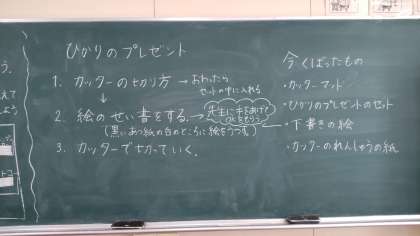 ひかりのプレゼント
1. カッターの切り方 → おわったら
セットの中に入れる
↓
2. 絵のせい書をする. → 先生に手をあげて
OKをもらう
(黒いあつ紙の白のところに絵をうつす)
3. カッターで切っていく.
今くばったもの
・カッターマット
・ひかりのプレゼントのセット
・下書きの絵
・カッターのれんしゅうの紙